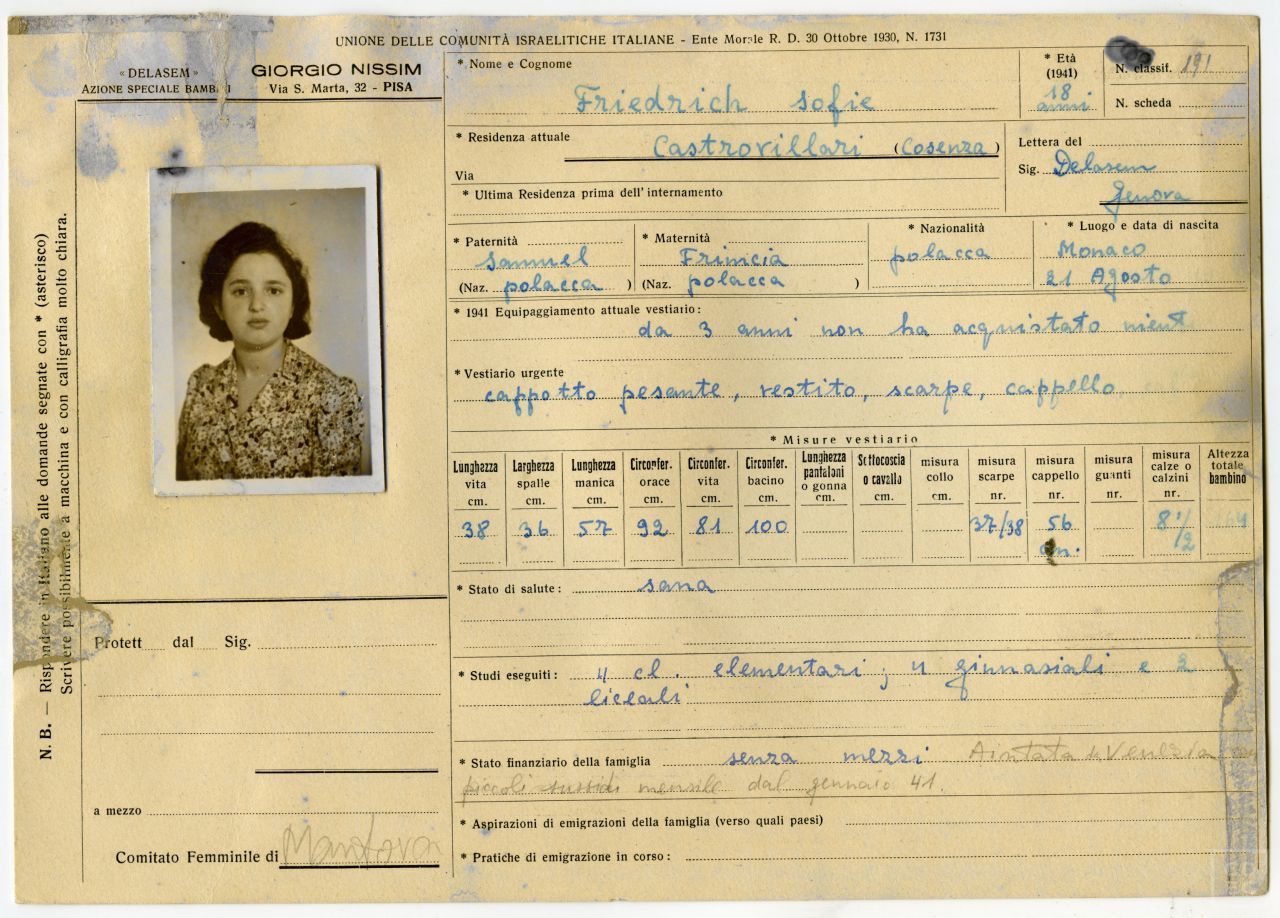 UNIONE DELLE COMUNITÀ ISRAELITICHE ITALIANE - Ente Morale R. D. 30 Ottobre 1930, N. 1731
« DELASEM »
AZIONE SPECIALE BAMBINI
GIORGIO NISSIM
Via S. Marta, 32 - PISA
* Nome e Cognome
Friedrich Sofie
* Età
(1941)
18
anni
N. classif. 191
N. scheda
* Residenza attuale
Castrovillari (Cosenza)
Via
* Ultima Residenza prima dell'internamento
Lettera del
Sig. Delasem
Genova
* Paternità
Samuel
(Naz. polacca )
* Maternità
(Naz. polacca )
* Nazionalità
polacca
* Luogo e data di nascita
Monaco
21 Agosto
* 1941 Equipaggiamento attuale vestiario:
da 3 anni non ha acquistato nient
* Vestiario urgente
cappotto pesante, vestito, scarpe, cappello
* Misure vestiario
Lunghezza vita cm. 38
Larghezza spalle cm. 36
Lunghezza manica cm. 57
Circonfer. orace cm. 92
Circonfer. vita cm. 81
Circonfer. bacino cm. 100
Lunghezza pantaloni o gonna cm.
Sottocoscia o cavallo cm.
misura collo cm.
misura scarpe nr. 37/38
misura cappello nr. 56 cm.
misura guanti nr.
misura calze o calzini nr. 8 1/2
Altezza totale bambino 164
* Stato di salute: sana
* Studi eseguiti: 4 cl. elementari; 4 ginnasiali e 2
liceali
* Stato finanziario della famiglia senza mezzi Aiutata da Venezia con
piccoli sussidi mensile dal gennaio 41.
* Aspirazioni di emigrazioni della famiglia (verso quali paesi)
* Pratiche di emigrazione in corso:
Protett dal Sig.
a mezzo
Comitato Femminile di Mantova
N. B. — Rispondere in Italiano alle domande segnate con * (asterisco)
Scrivere possibilmente a macchina e con calligrafia molto chiara.